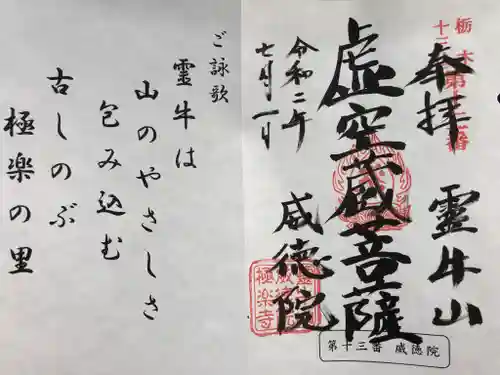 栃木
十三
第
番
奉拝
霊牛山
虚空蔵菩薩
威徳院
令和二年
七月一日
極楽寺
第十三番 威徳院
ご詠歌
霊牛は
山のやさしさ
包み込む
古しのぶ
極楽の里